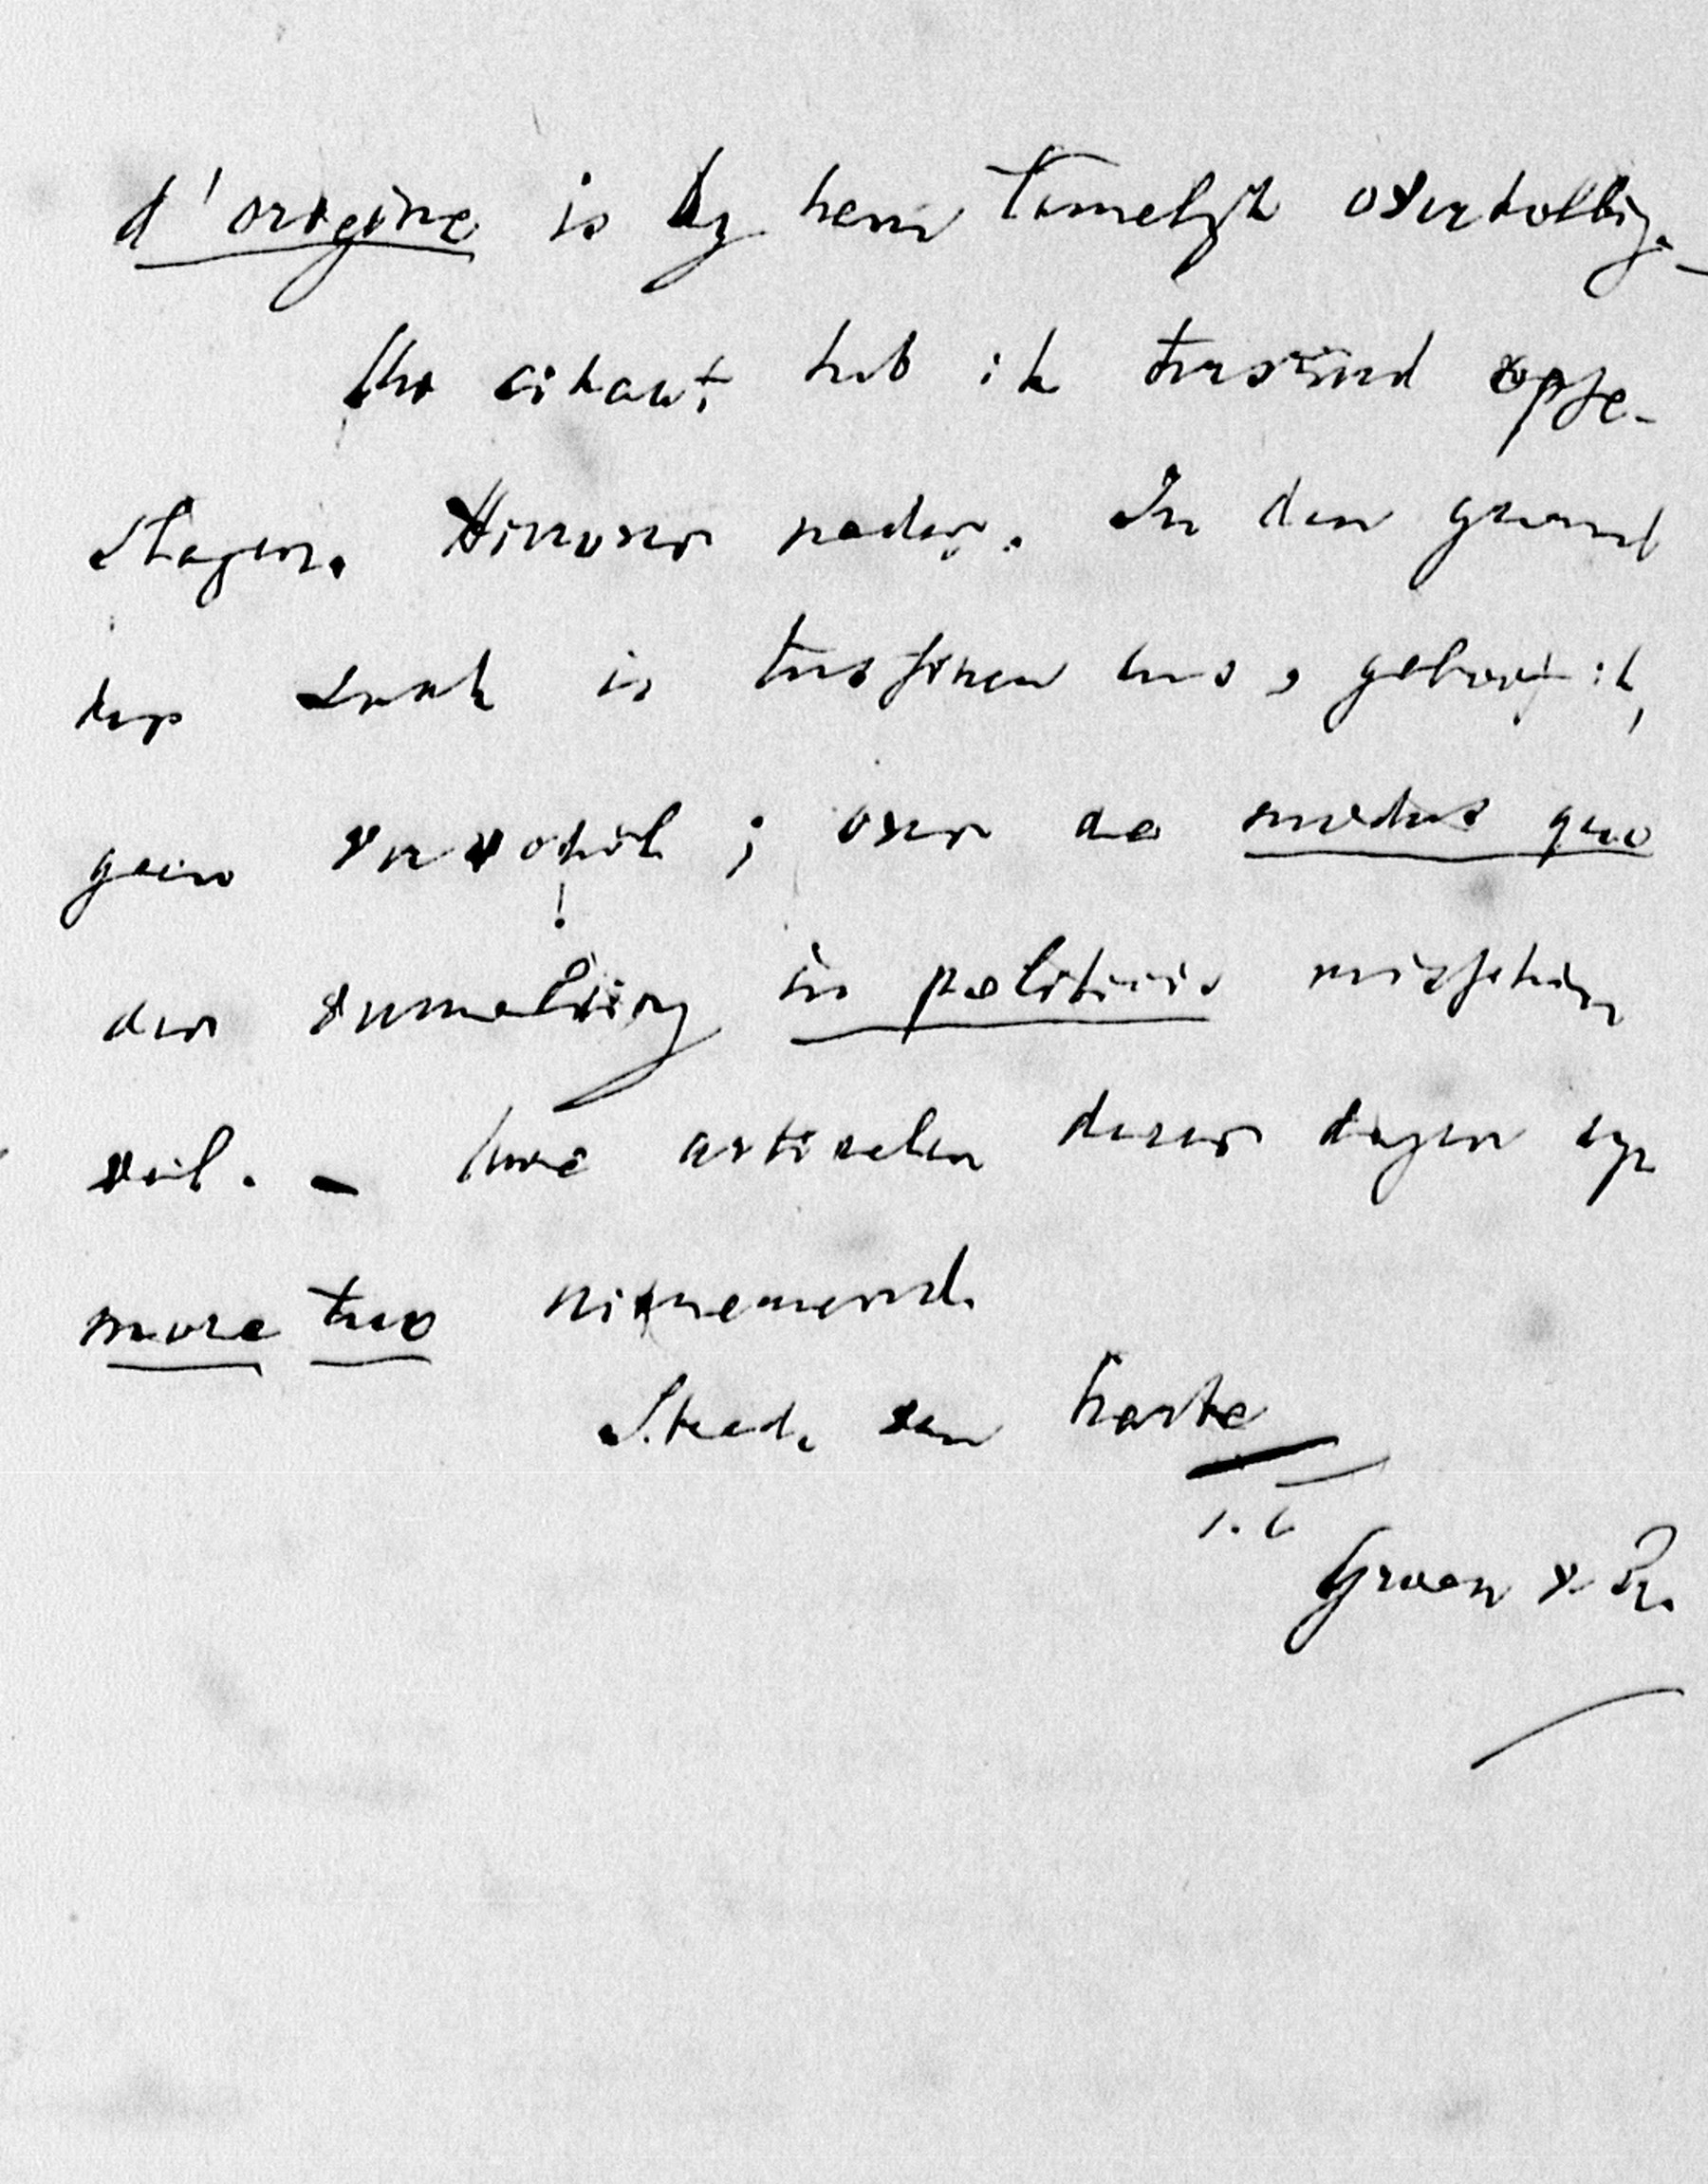 d'origine is by hem tamelijk overtollig. –
Uw citaat heb ik terstond opge-
slagen. Hierover nader. In den grond
der zaak is tusschen ons, geloof ik,
geen verschil; over de modus quo
der vermelding in politicis misschien
veel. – Uwe artikelen dezer dagen zyn
more tuo uitnemend.
Steeds van harte
t. t.
Groen v. Pr.